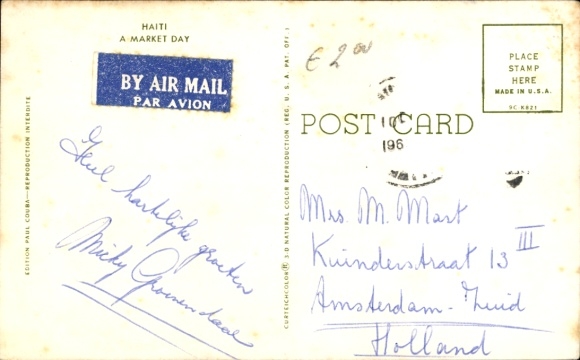 HAITI
A MARKET DAY
BY AIR MAIL
PAR AVION
EDITION PAUL COUBA—REPRODUCTION INTERDITE
Heel hartelijke groeten
Micky Groenendaal
CURTEICHCOLOR® 3-D NATURAL COLOR REPRODUCTION (REG. U. S. A. PAT. OFF.)
€ 2.00
PLACE
STAMP
HERE
MADE IN U.S.A.
9C-K821
POST CARD
196
Mrs M. Mart
Kuinderstraat 13 III
Amsterdam-Zuid
Holland